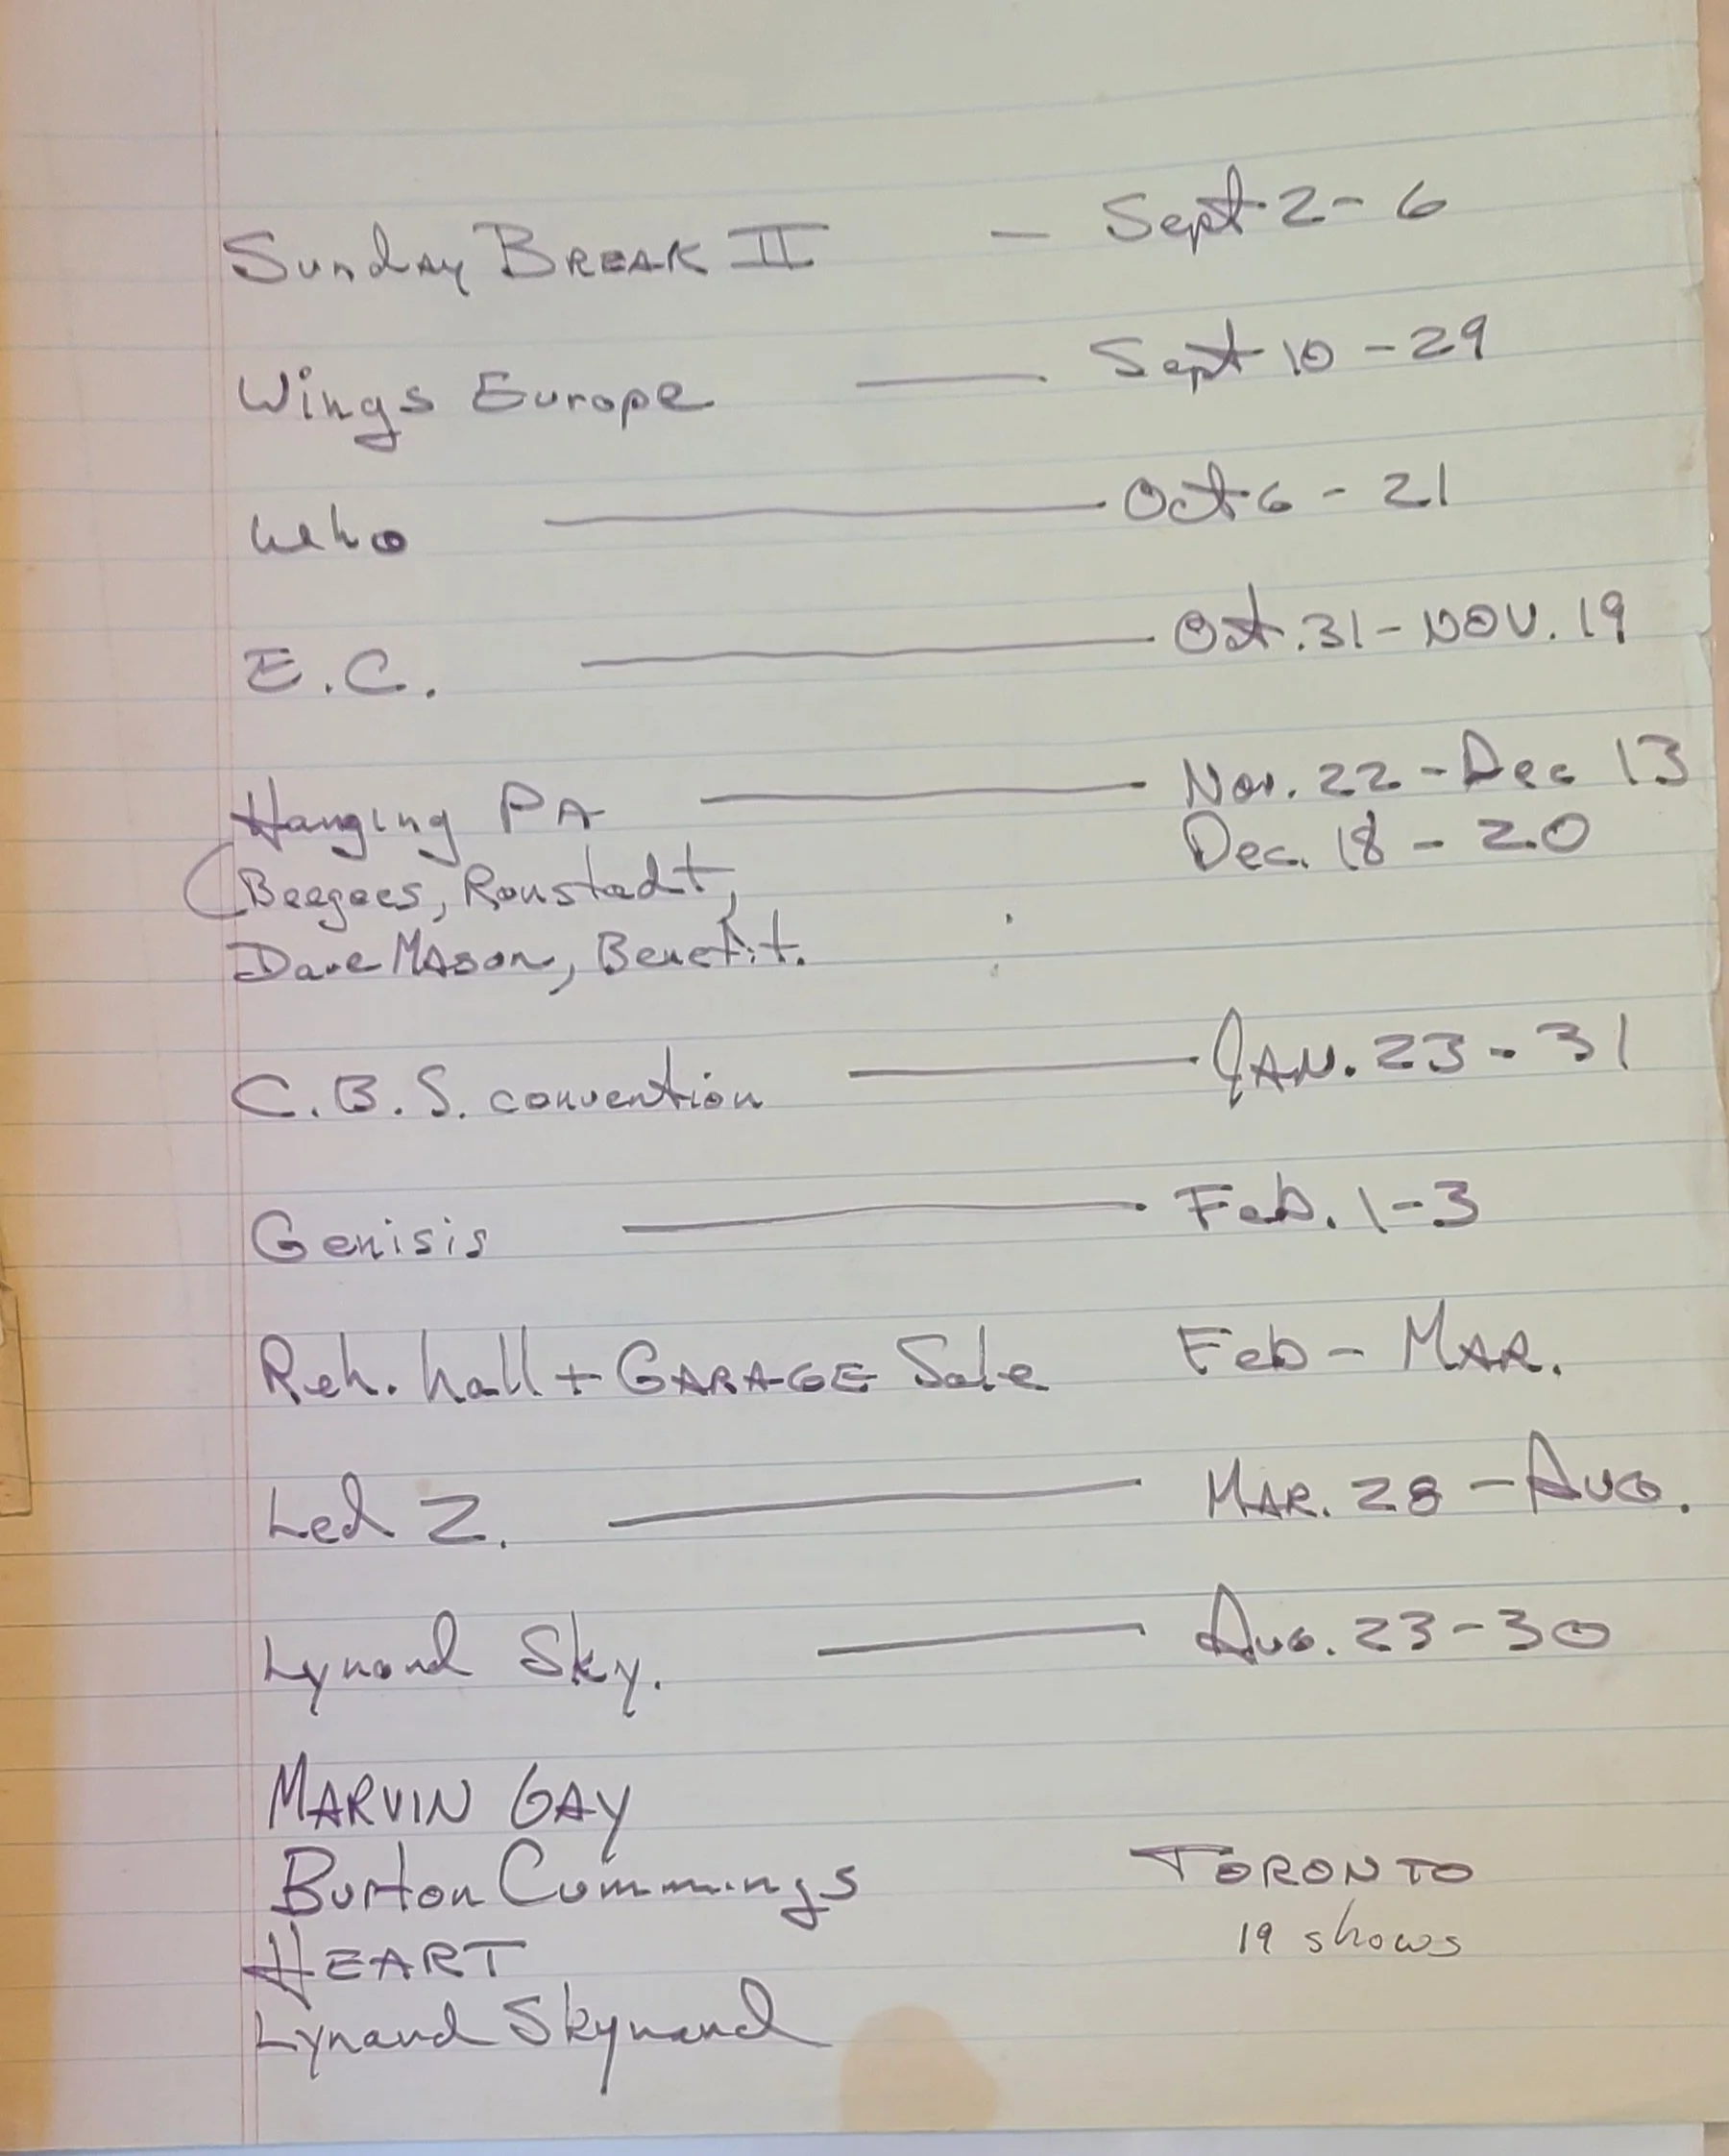 Sunday BREAK II — Sept 2-6
Wings Europe — Sept 10-29
Who — Oct 6-21
E.C. — Oct. 31-NOV. 19
Hanging PA — Nov. 22-Dec 13
Dec. 18-20
(Beegees, Ronstadt,
Dave Mason, Benefit.
C.B.S. convention — JAN. 23-31
Genisis — Feb. 1-3
Reh. hall + GARAGE Sale Feb - MAR.
Led Z. — MAR. 28-AUG.
Lynard Sky. — AUG. 23-30
MARVIN GAY
Burton Cummings TORONTO
HEART 19 shows
Lynard Skynard